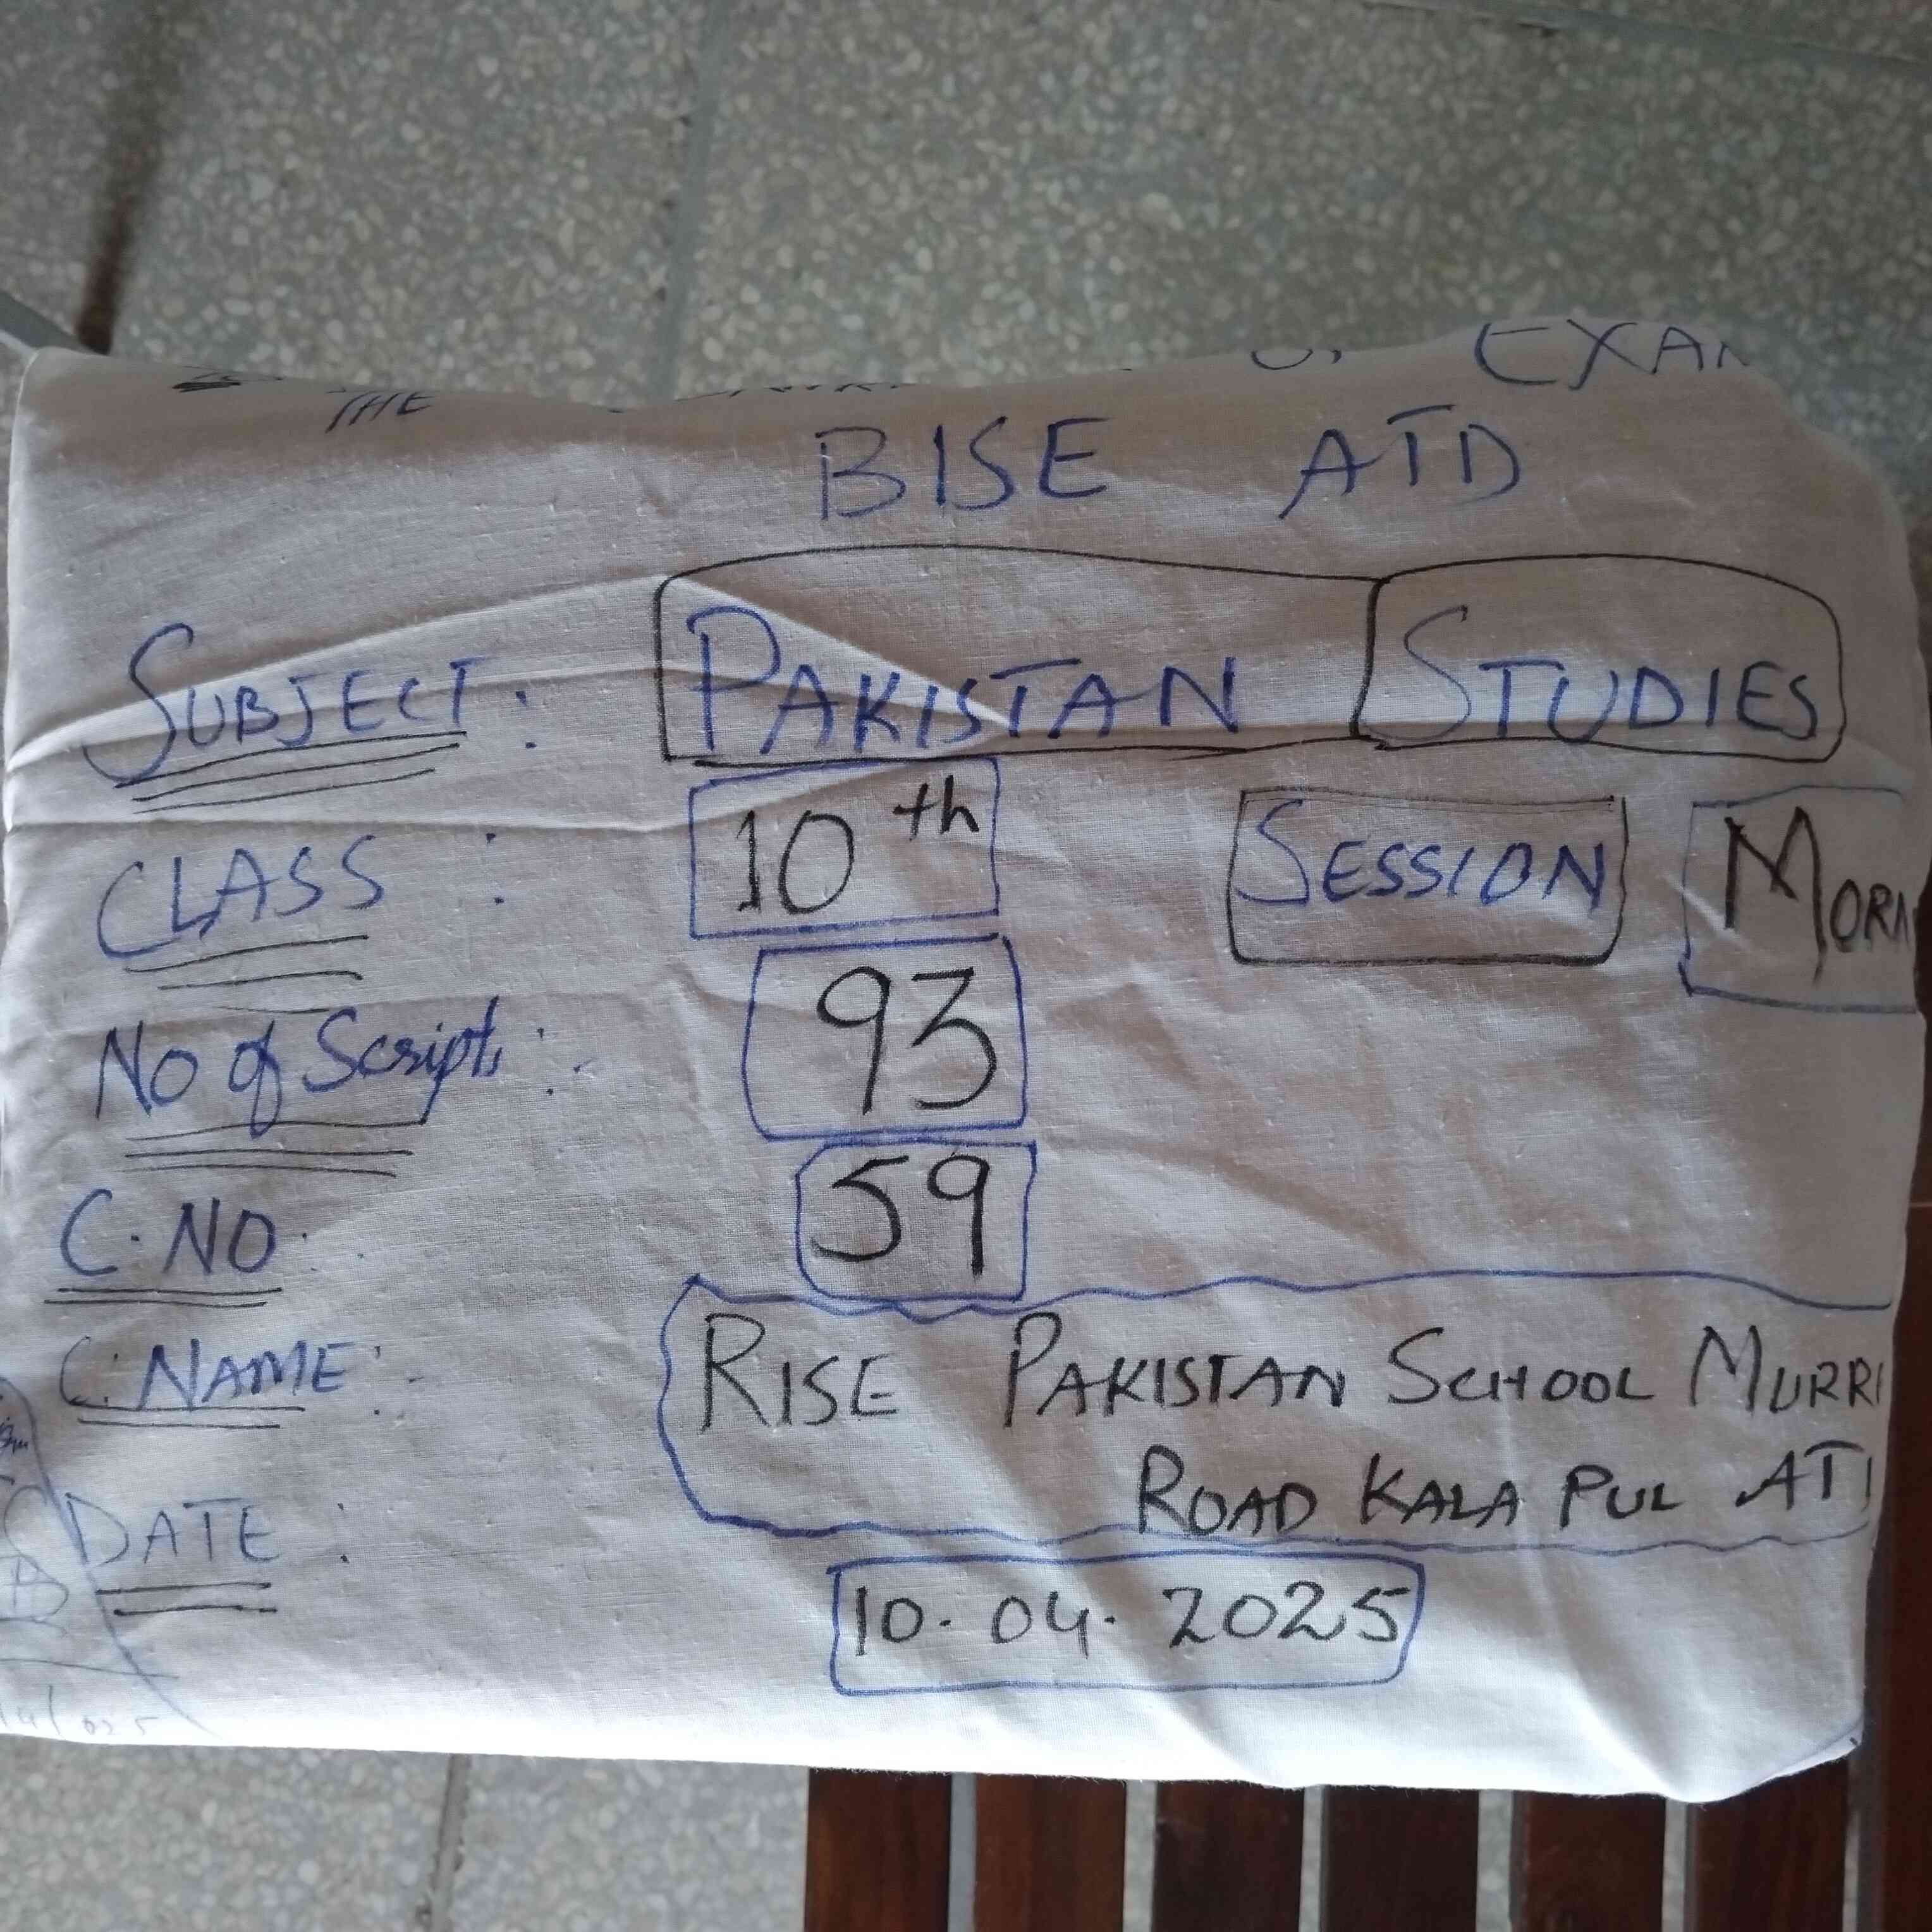 THE OF EXAM
BISE ATD
SUBJECT: PAKISTAN STUDIES
CLASS : 10th SESSION MORN
No of Scripts :- 93
C.NO. 59
C.NAME:- RISE PAKISTAN SCHOOL MURRI
ROAD KALA PUL ATD
DATE : 10.04.2025